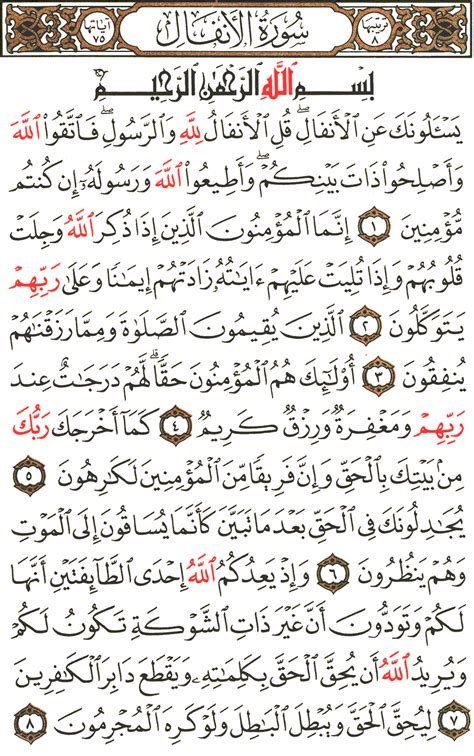 ترتيبها ٨ سُورَةُ الأَنفَال آياتها ٧٥
بِسْمِ ٱللَّهِ ٱلرَّحْمَٰنِ ٱلرَّحِيمِ
يَسْـَٔلُونَكَ عَنِ ٱلْأَنفَالِ ۖ قُلِ ٱلْأَنفَالُ لِلَّهِ وَٱلرَّسُولِ ۖ فَٱتَّقُوا۟ ٱللَّهَ
وَأَصْلِحُوا۟ ذَاتَ بَيْنِكُمْ ۖ وَأَطِيعُوا۟ ٱللَّهَ وَرَسُولَهُۥٓ إِن كُنتُم
مُّؤْمِنِينَ ١ إِنَّمَا ٱلْمُؤْمِنُونَ ٱلَّذِينَ إِذَا ذُكِرَ ٱللَّهُ وَجِلَتْ
قُلُوبُهُمْ وَإِذَا تُلِيَتْ عَلَيْهِمْ ءَايَٰتُهُۥ زَادَتْهُمْ إِيمَٰنًا وَعَلَىٰ رَبِّهِمْ
يَتَوَكَّلُونَ ٢ ٱلَّذِينَ يُقِيمُونَ ٱلصَّلَوٰةَ وَمِمَّا رَزَقْنَٰهُمْ
يُنفِقُونَ ٣ أُو۟لَٰٓئِكَ هُمُ ٱلْمُؤْمِنُونَ حَقًّا ۚ لَّهُمْ دَرَجَٰتٌ عِندَ
رَبِّهِمْ وَمَغْفِرَةٌ وَرِزْقٌ كَرِيمٌ ٤ كَمَآ أَخْرَجَكَ رَبُّكَ
مِنۢ بَيْتِكَ بِٱلْحَقِّ وَإِنَّ فَرِيقًا مِّنَ ٱلْمُؤْمِنِينَ لَكَٰرِهُونَ ٥
يُجَٰدِلُونَكَ فِى ٱلْحَقِّ بَعْدَ مَا تَبَيَّنَ كَأَنَّمَا يُسَاقُونَ إِلَى ٱلْمَوْتِ
وَهُمْ يَنظُرُونَ ٦ وَإِذْ يَعِدُكُمُ ٱللَّهُ إِحْدَى ٱلطَّآئِفَتَيْنِ أَنَّهَا
لَكُمْ وَتَوَدُّونَ أَنَّ غَيْرَ ذَاتِ ٱلشَّوْكَةِ تَكُونُ لَكُمْ
وَيُرِيدُ ٱللَّهُ أَن يُحِقَّ ٱلْحَقَّ بِكَلِمَٰتِهِۦ وَيَقْطَعَ دَابِرَ ٱلْكَٰفِرِينَ
٧ لِيُحِقَّ ٱلْحَقَّ وَيُبْطِلَ ٱلْبَٰطِلَ وَلَوْ كَرِهَ ٱلْمُجْرِمُونَ ٨